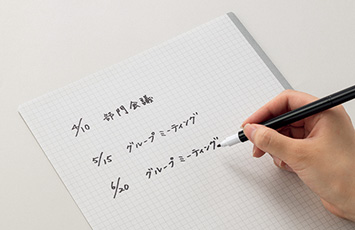 4/10 部門会議
5/15 グループミーティング
6/20 グループミーティング